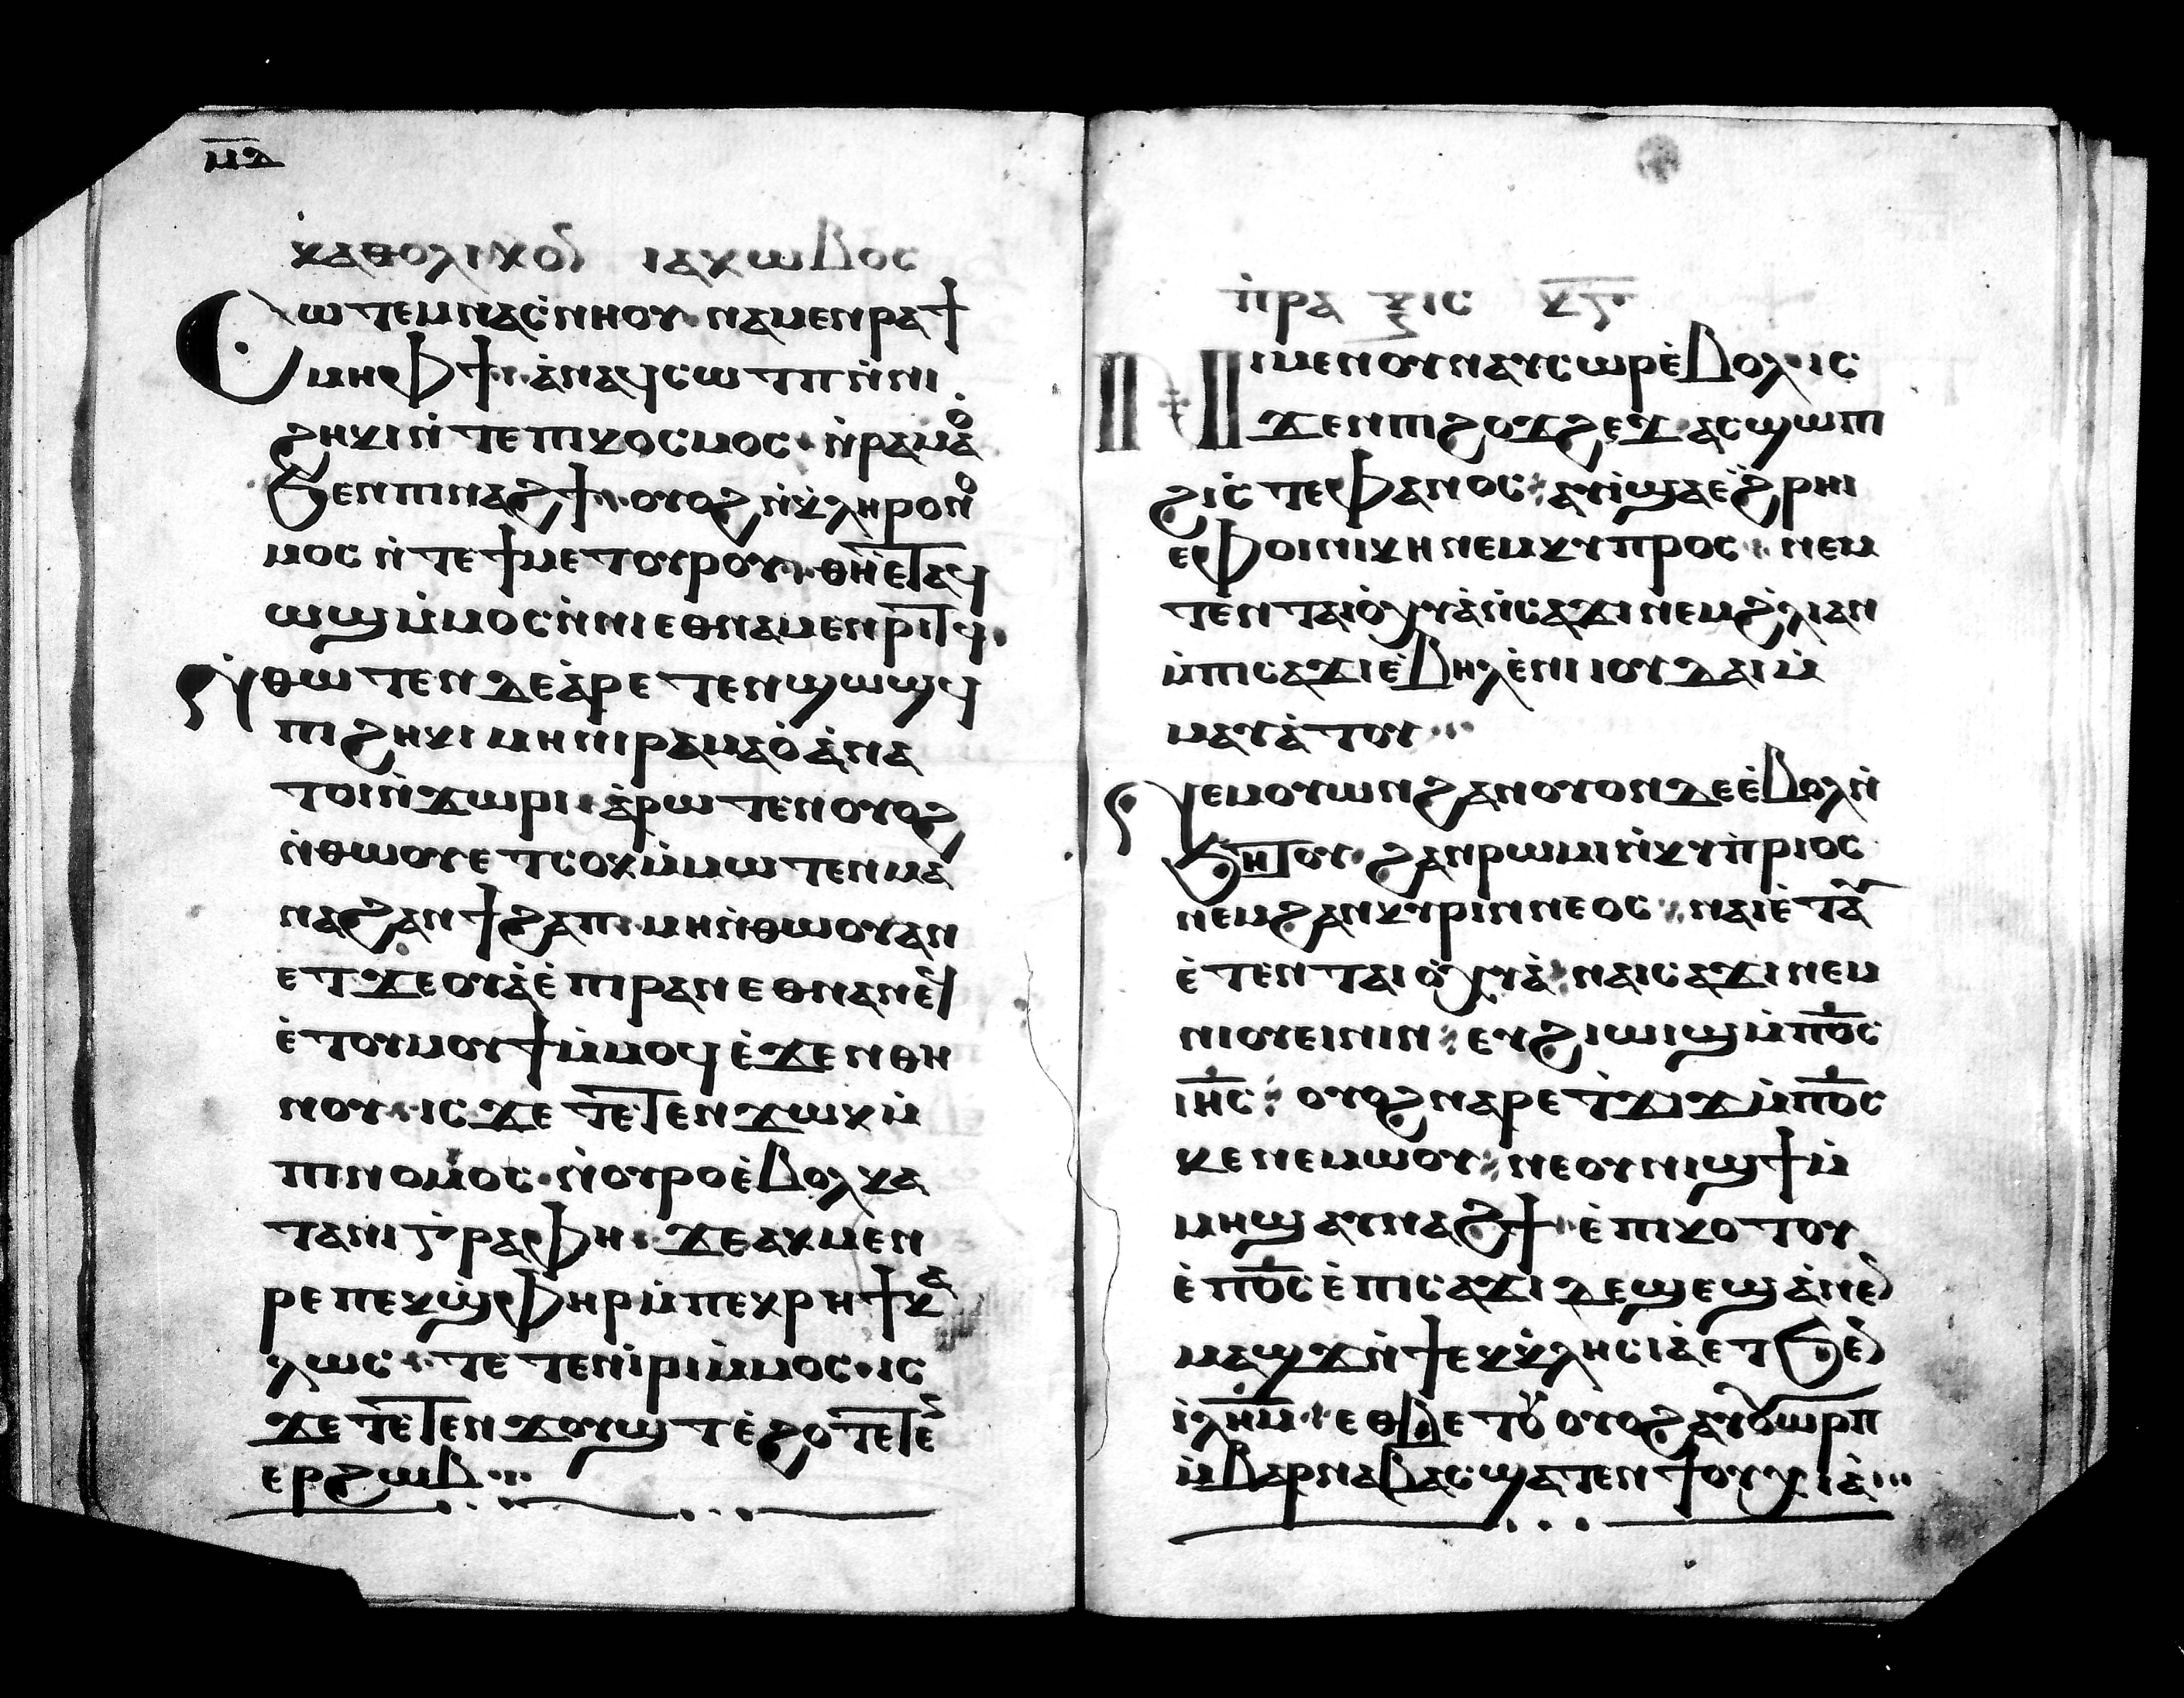 ⲙ̅ⲇ̅
ⲕⲁⲑⲟⲗⲓⲕⲟⲛ ⲓⲁⲕⲱⲃⲟⲥ
Ⲥⲱⲧⲉⲙ ⲛⲁⲥ̀ⲛⲏⲟⲩ ⲛⲁⲙⲉⲛⲣⲁϯ
ⲙⲏ ⲫϯ ⲁⲛ ⲁϥⲥⲱⲧⲡ ⲛ̀ⲛⲓ
ϩⲏⲕⲓ ⲛ̀ⲧⲉ ⲡⲓⲕⲟⲥⲙⲟⲥ ⲛ̀ⲣⲁⲙⲁⲟ̀
ϧⲉⲛ ⲡⲓⲛⲁϩϯ ⲟⲩⲟϩ ⲛ̀ⲕ̀ⲗⲏⲣⲟⲛⲟ
ⲙⲟⲥ ⲛ̀ⲧⲉ ϯⲙⲉⲧⲟⲩⲣⲟⲩ ⲑⲏⲉ̀ⲧⲁϥ
ⲱϣ ⲙ̀ⲙⲟⲥ ⲛ̀ⲛⲓⲉⲑⲛⲁⲙⲉⲛⲣⲓⲧϥ
Ⲛ̀ⲑⲱⲧⲉⲛ ⲇⲉ ⲁ̀ⲣⲉⲧⲉⲛϣⲱϣϥ
ⲡⲓϩⲏⲕⲓ ⲙⲏ ⲛⲓⲣⲁⲙⲁⲟ̀ ⲁⲛ ⲁ
ⲧⲟⲓ ⲛ̀ϫⲱⲣⲓ ⲁ̀ⲣⲱⲧⲉⲛ ⲟⲩⲟϩ
ⲛ̀ⲑⲱⲟⲩ ⲉⲧⲥⲟⲕ ⲙ̀ⲙⲱⲧⲉⲛ ⲙⲁ
ⲛⲁϩⲁⲛϯϩⲁⲡ ⲙⲏ ⲛ̀ⲑⲱⲟⲩ ⲁⲛ
ⲉⲧϫⲉⲟⲩⲁ̀ ⲉ̀ⲡⲓⲣⲁⲛ ⲉⲑⲛⲁⲛⲉϥ
ⲉ̀ⲧⲟⲩⲙⲟⲩϯ ⲙ̀ⲙⲟϥ ⲉ̀ϫⲉⲛ ⲑⲏ
ⲛⲟⲩ ⲓⲥϫⲉ ⲧⲉⲧⲉⲛϫⲱⲕ ⲙ̀
ⲡⲓⲛⲟⲙⲟⲥ ⲛ̀ⲟⲩⲣⲟ ⲉ̀ⲃⲟⲗ ⲕⲁ
ⲧⲁ ⲛⲓⲅ̀ⲣⲁⲫⲏ ϫⲉ ⲉⲕⲙⲉⲛ
ⲣⲉ ⲡⲉⲕϣ̀ⲫⲏⲣ ⲙ̀ⲡⲉⲕⲣⲏϯ ⲕⲁ
ⲗⲱⲥ ⲧⲉⲧⲉⲛⲓ̀ⲣⲓ ⲙ̀ⲙⲟⲥ ⲓⲥ
ϫⲉ ⲧⲉⲧⲉⲛϫⲟⲩϣⲧ ⲉ̀ϩⲟ ⲧⲉⲧⲉⲛ
ⲉⲣϩⲱⲃ
ⲡ̀ⲣⲁⲝⲓⲥ ⲕ̅ⲋ̅
Ⲛⲏ ⲙⲉⲛ ⲟⲩⲛ ⲁⲩⲥⲱⲣ ⲉ̀ⲃⲟⲗ ⲓⲥ
ϫⲉⲛ ⲡⲓϩⲟϫϩⲉϫ ⲁⲥϣⲱⲡⲓ
ϩⲓ ⲥ̀ⲧⲉⲫⲁⲛⲟⲥ ⲁⲩⲓ̀ ϣⲁ ⲉ̀ϩⲣⲏⲓ
ⲉ ⲫⲟⲓⲛⲓⲕⲏ ⲛⲉⲙ ⲕⲩⲡⲣⲟⲥ ⲛⲉⲙ
ⲧⲉⲛⲧⲁⲓⲟ̀ⲭⲓⲁ̀ ⲛ̀ⲥⲁϫⲓ ⲛⲉⲙ ϩ̀ⲗⲓ ⲁⲛ
ⲙ̀ⲡⲓⲥⲁϫⲓ ⲉ̀ⲃⲏⲗ ⲉ̀ⲛⲓⲓⲟⲩⲇⲁⲓ ⲙ̀
ⲙⲁⲩⲁ̀ⲧⲟⲩ
Ⲛⲉⲙⲟⲩⲱⲛ ϩⲁⲛⲟⲩⲟⲛ ⲇⲉ ⲉ̀ⲃⲟⲗ ⲛ̀
ϧⲏⲧⲟⲩ ϩⲁⲛⲣⲱⲙⲓ ⲛ̀ⲕⲩⲡⲣⲓⲟⲥ
ⲛⲉⲙ ϩⲁⲛⲕⲩⲣⲓⲛⲛⲉⲟⲥ ⲛⲁⲓ ⲉ̀ⲧⲁⲩⲓ̀
ⲉ̀ⲧⲉⲛⲧⲁⲓⲟ̀ⲭⲓⲁ̀ ⲛⲁⲓⲥⲁϫⲓ ⲛⲉⲙ
ⲛⲓⲟⲩⲉⲓⲛⲓⲛ ⲉⲩϩⲓⲱⲓϣ ⲙ̀ⲡⲟ̅ⲥ̅
ⲓⲏ̅ⲥ̅ ⲟⲩⲟϩ ⲛⲁⲣⲉ ⲧ̀ϫⲓϫ ⲙ̀ⲡⲟ̅ⲥ̅
ⲕⲉ ⲛⲉⲙⲱⲟⲩ ⲛⲉ ⲟⲩⲛⲓϣϯ ⲙ̀
ⲙⲏϣ ⲁⲩⲛⲁϩϯ ⲉ̀ⲡⲓⲕⲟⲧⲟⲩ
ⲉ̀ⲡⲟ̅ⲥ̅ ⲉ̀ⲡⲓⲥⲁϫⲓ ⲇⲉ ϣⲉ ϣⲁ ⲛⲉⲛ
ⲙⲁϣϫ ⲛ̀ϯⲉⲕⲕ̀ⲗⲏⲥⲓⲁ̀ ⲉⲧϧⲉⲛ
ⲓ̅ⲗ̅ⲏ̅ⲙ̅ ⲉⲑⲃⲉⲧⲟⲩ ⲟⲩⲟϩ ⲁⲩⲟⲩⲱⲣⲡ
ⲙ̀ⲃⲁⲣⲛⲁⲃⲁⲥ ϣⲁ ⲧⲉⲛϯⲟⲩⲭⲓⲁ̀